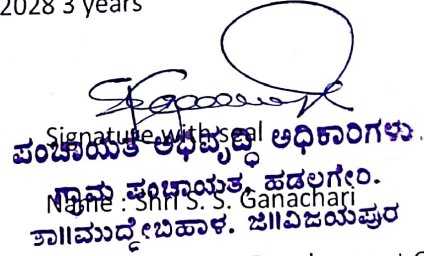 2028 3 years
Signature with seal
ಪಂಚಾಯತ ಅಭಿವೃದ್ಧಿ ಅಧಿಕಾರಿಗಳು.
ಗ್ರಾಮ ಪಂಚಾಯತ, ಹಡಲಗೇರಿ.
Name : Shri S. S. Ganachari
ತಾ||ಮುದ್ದೇಬಿಹಾಳ. ಜಿ||ವಿಜಯಪುರ